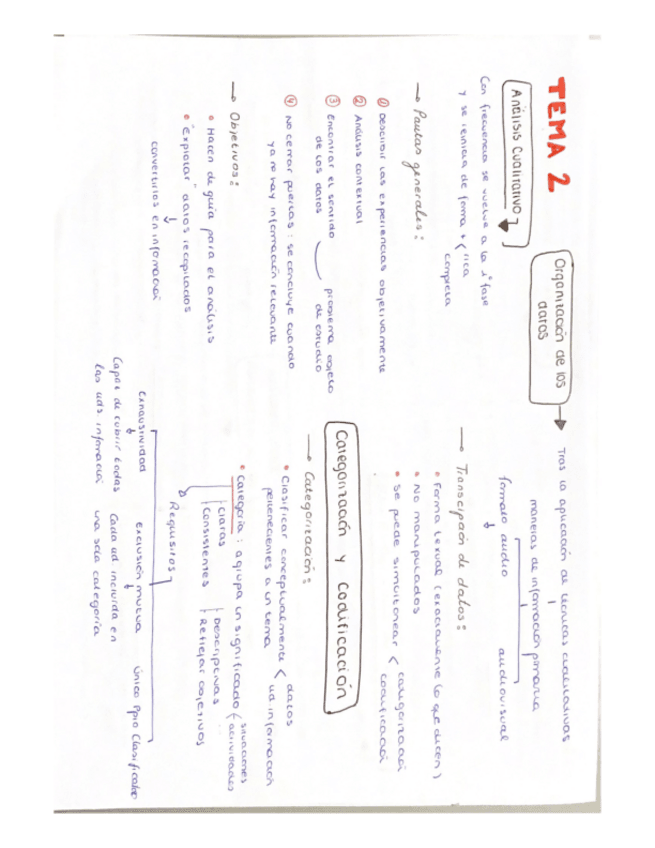 TEMA 2
Análisis Cualitativo
Con frecuencia se vuelve a la 1ª fase
y se reinicia de forma + < rica
completa
→ Pautas generales:
① Describir las experiencias objetivamente
② Análisis contextual
③ Encontrar el sentido
de los datos
problema objeto
de estudio
④ No cerrar puertas: se concluye cuando
ya no hay información relevante
→ Objetivos:
• Hacen de guía para el análisis
• "Explotar" datos recopilados
↓
convertirlos en información
Organización de los
datos
Tras la aplicación de técnicas cualitativas
manejas de información primaria
formato audio
audiovisual
→ Transcipción de datos:
• Forma textual (exactamente lo que dicen)
• No manipulados
• Se puede simultanear < categorizació
codificació
Categorización y Codificación
→ Categorización:
• Clasificar conceptualmente < datos
ud información
pertenecientes a un tema
• Categoría: agrupa un significado < situaciones
actividades
Claras
Descriptivas
Consistentes
Reflejar objetivos
Requisitos
Exhaustividad
Exclusión mutua
Único Ppio Clasificador
Capaz de cubrir todas
las uds. informació
Cada ud incluida en
una sola categoría